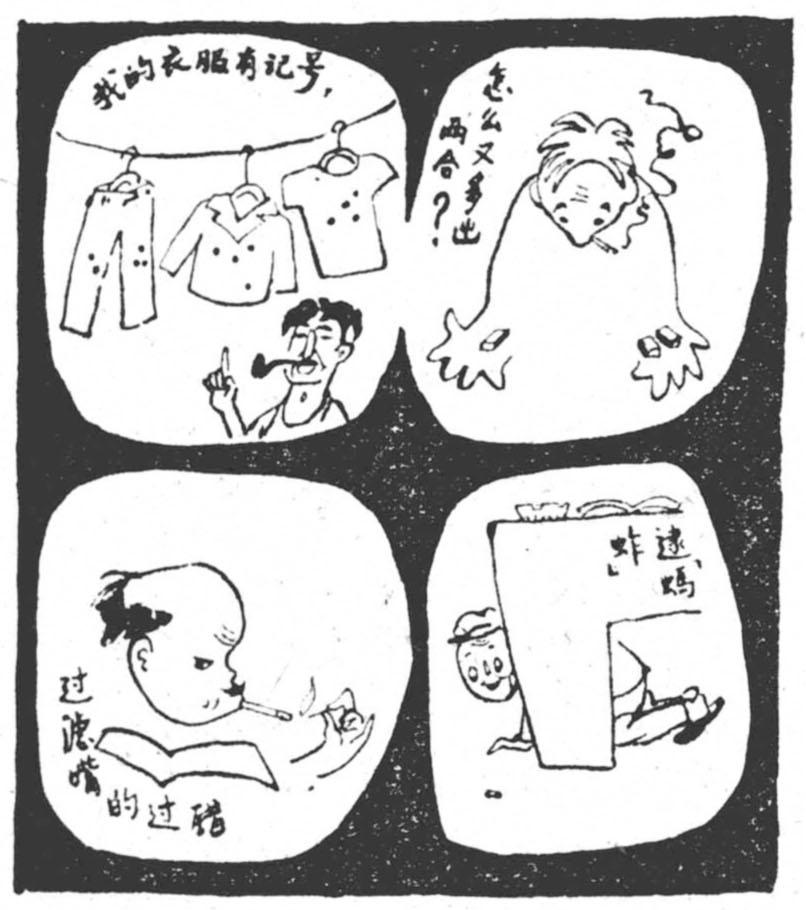 我的衣服有记号,
怎么又多出
两合?
过滤嘴
的过错
逮“螞
蚱”